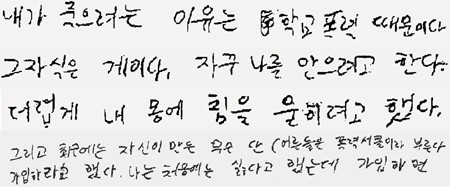 내가 죽으려는 이유는 학교 폭력 때문이다
그자식은 게이다. 자꾸 나를 안으려고 한다.
더럽게 내 몸에 침을 묻히려고 했다.
그리고 최근에는 자신이 만든 무슨 단 (어른들은 폭력서클이라 부른다
가입하라고 했다. 나는 처음에는 싫다고 했는데 가입하면